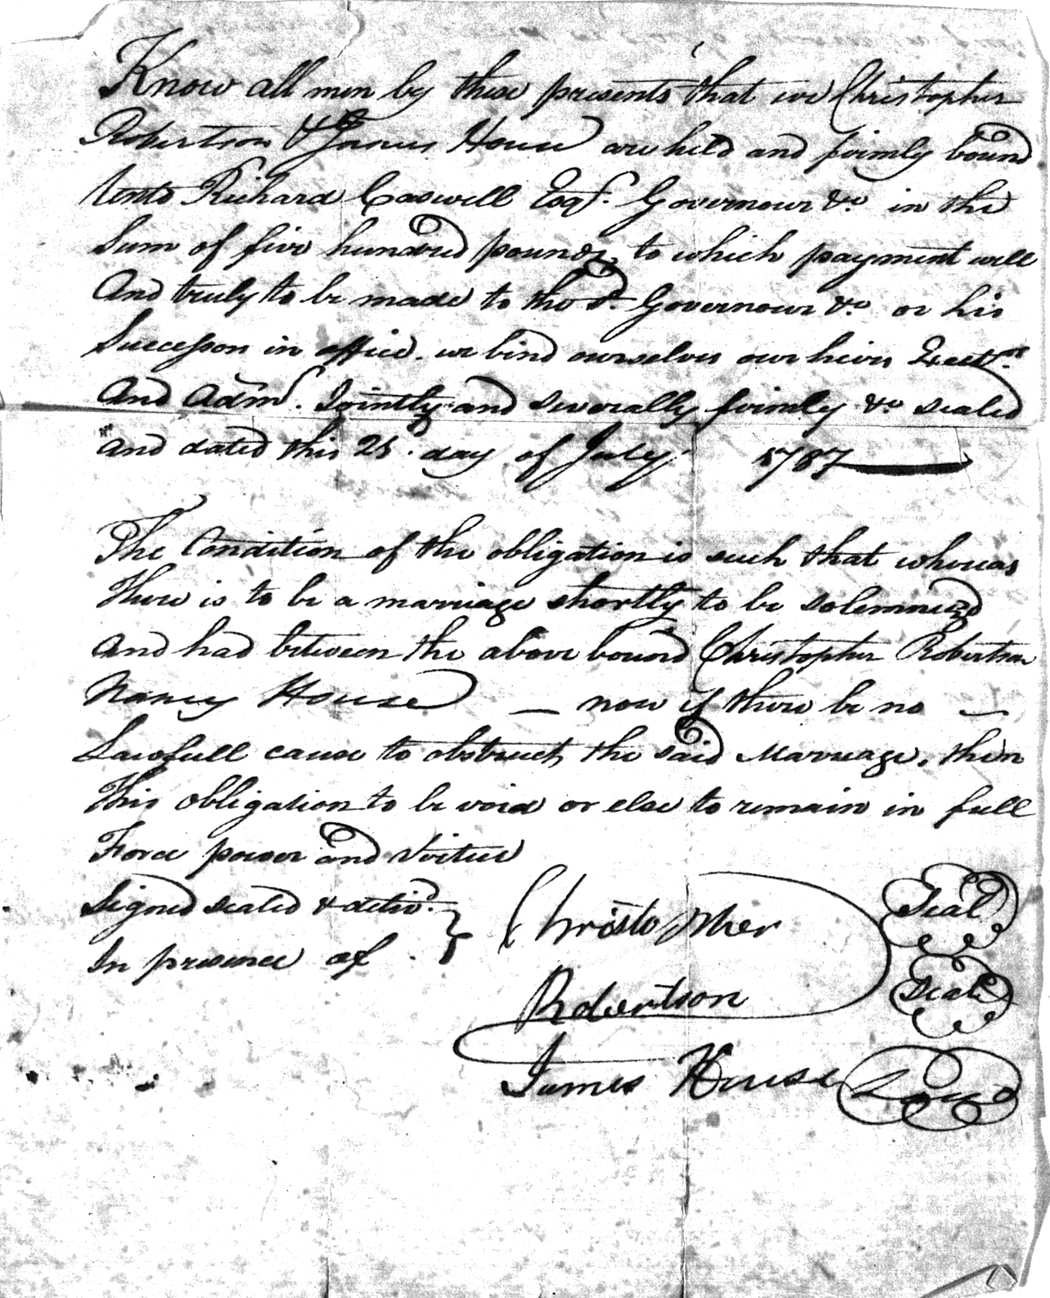 Know all men by these presents that we Christopher
Robertson & James House are held and firmly bound
Unto Richard Caswell Esqr. Governour &c in the
Sum of five hundred pounds, to which payment well
And truly to be made to the sd. Governour &c or his
Successors in office. we bind ourselves our heirs
And Adms. Jointly and severally firmly &c sealed
and dated this day of July 1787
The Condition of the obligation is such that whereas
There is to be a marriage shortly to be solemnized
And had between the above bound Christopher Robertson
Nancy House — now if there be no —
Lawfull cause to obstruct the said Marriage, then
This obligation to be void or else to remain in full
Force power and Virtue
Signed sealed & delivd.
In presence of
Christopher Seal
Robertson Seal
James House